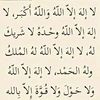 لا إلهَ إلَّا اللهُ واللهُ أَكْبَر، لا
إلهَ إلَّا اللهُ وَحْدَهُ لا شَرِيكَ
لَهُ، لا إلهَ إلَّا اللهُ لَهُ المُلْكُ
ولَهُ الحَمْدُ، لا إلهَ إلَّا اللهُ
وَلَا حَوْلَ وَلَا قُوَّةَ إلَّا بِاللهِ